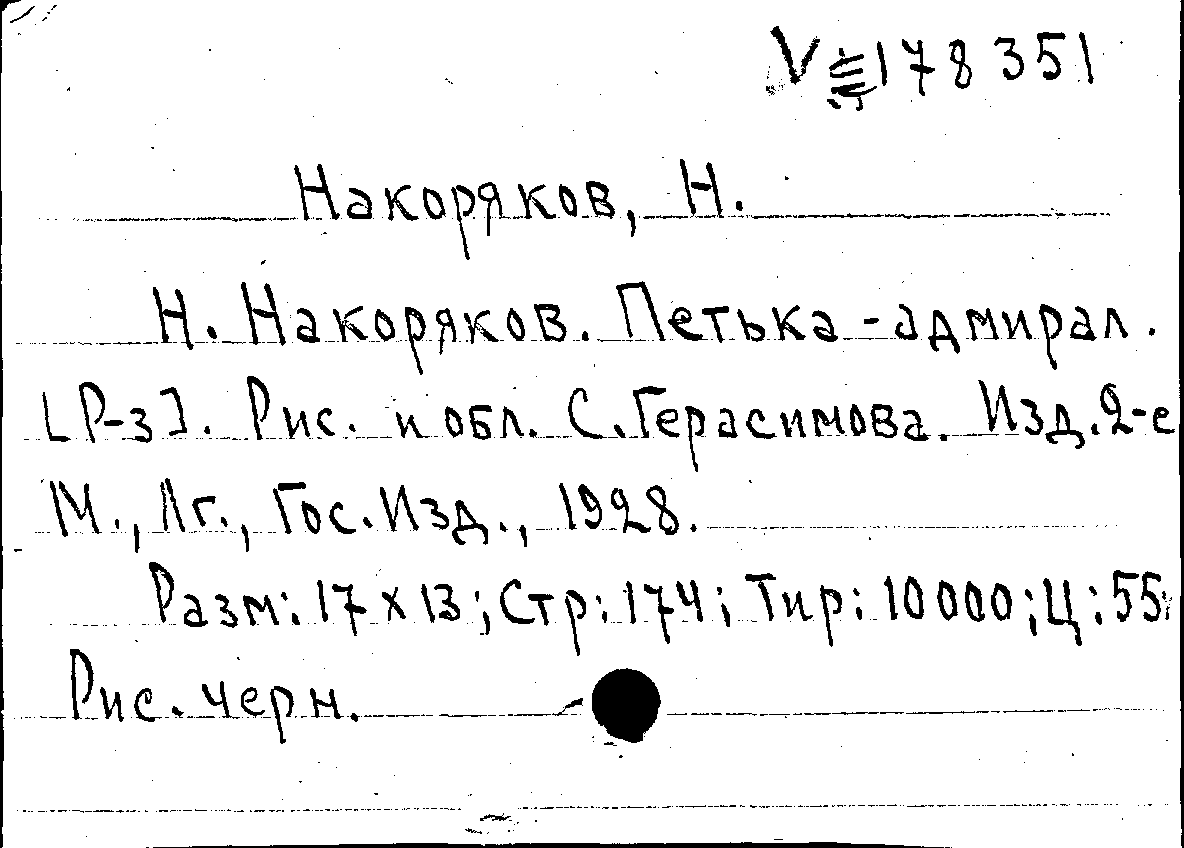 V 178351
Накоряков, Н.
Н. Накоряков. Петька-адмирал.
[Р-з]. Рис. и обл. С. Герасимова. Изд. 2-е
М., Лг., Гос. Изд., 1928.
Разм: 17 х 13; Стр: 174; Тир: 10000; Ц: 55
Рис. черн.